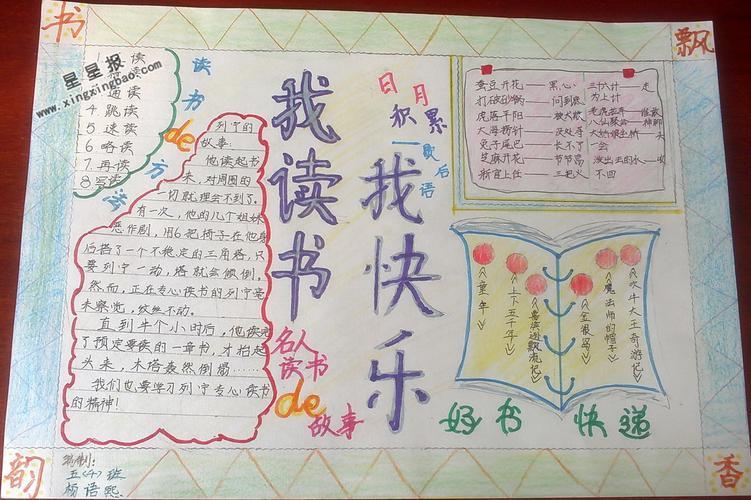 书
飘
韵
香
星星报
www.xingxingbao.com
读书de方法
通读
4.跳读
5.速读
6.略读
7.再读
8.写读
列宁的
故事:
他读起书
来,对周围的
一切就理会不到了。
有一次,他的几个姐妹
恶作剧,用6把椅子在他身
后搭了一个不稳定的三角塔,只
要列宁一动,塔就会倾倒。
然而,正在专心读书的列宁毫
未察觉,纹丝不动。
直到半个小时后,他读完
了预定要读的一章书,才抬起
头来,木塔轰然倒塌……
我们也要学习列宁专心读书
的精神!
我读书
我快乐
名人
读书
de
故事
日月
积累
歇后语
蚕豆开花——黑心
打破砂锅——问到底
虎落平阳——被犬欺
大海捞针——没处寻
兔子尾巴——长不了
芝麻开花——节节高
新官上任——三把火
三十六计——走
为上计
八仙聚会——神聊
大姑娘坐轿——头
一会
泼出去的水——收
不回
《童年》
《上下五千年》
《鲁滨逊飘流记》
《金银岛》
《魔法师的帽子》
《吹牛大王奇游记》
好书 快递
编制:
五(4)班
杨语熙